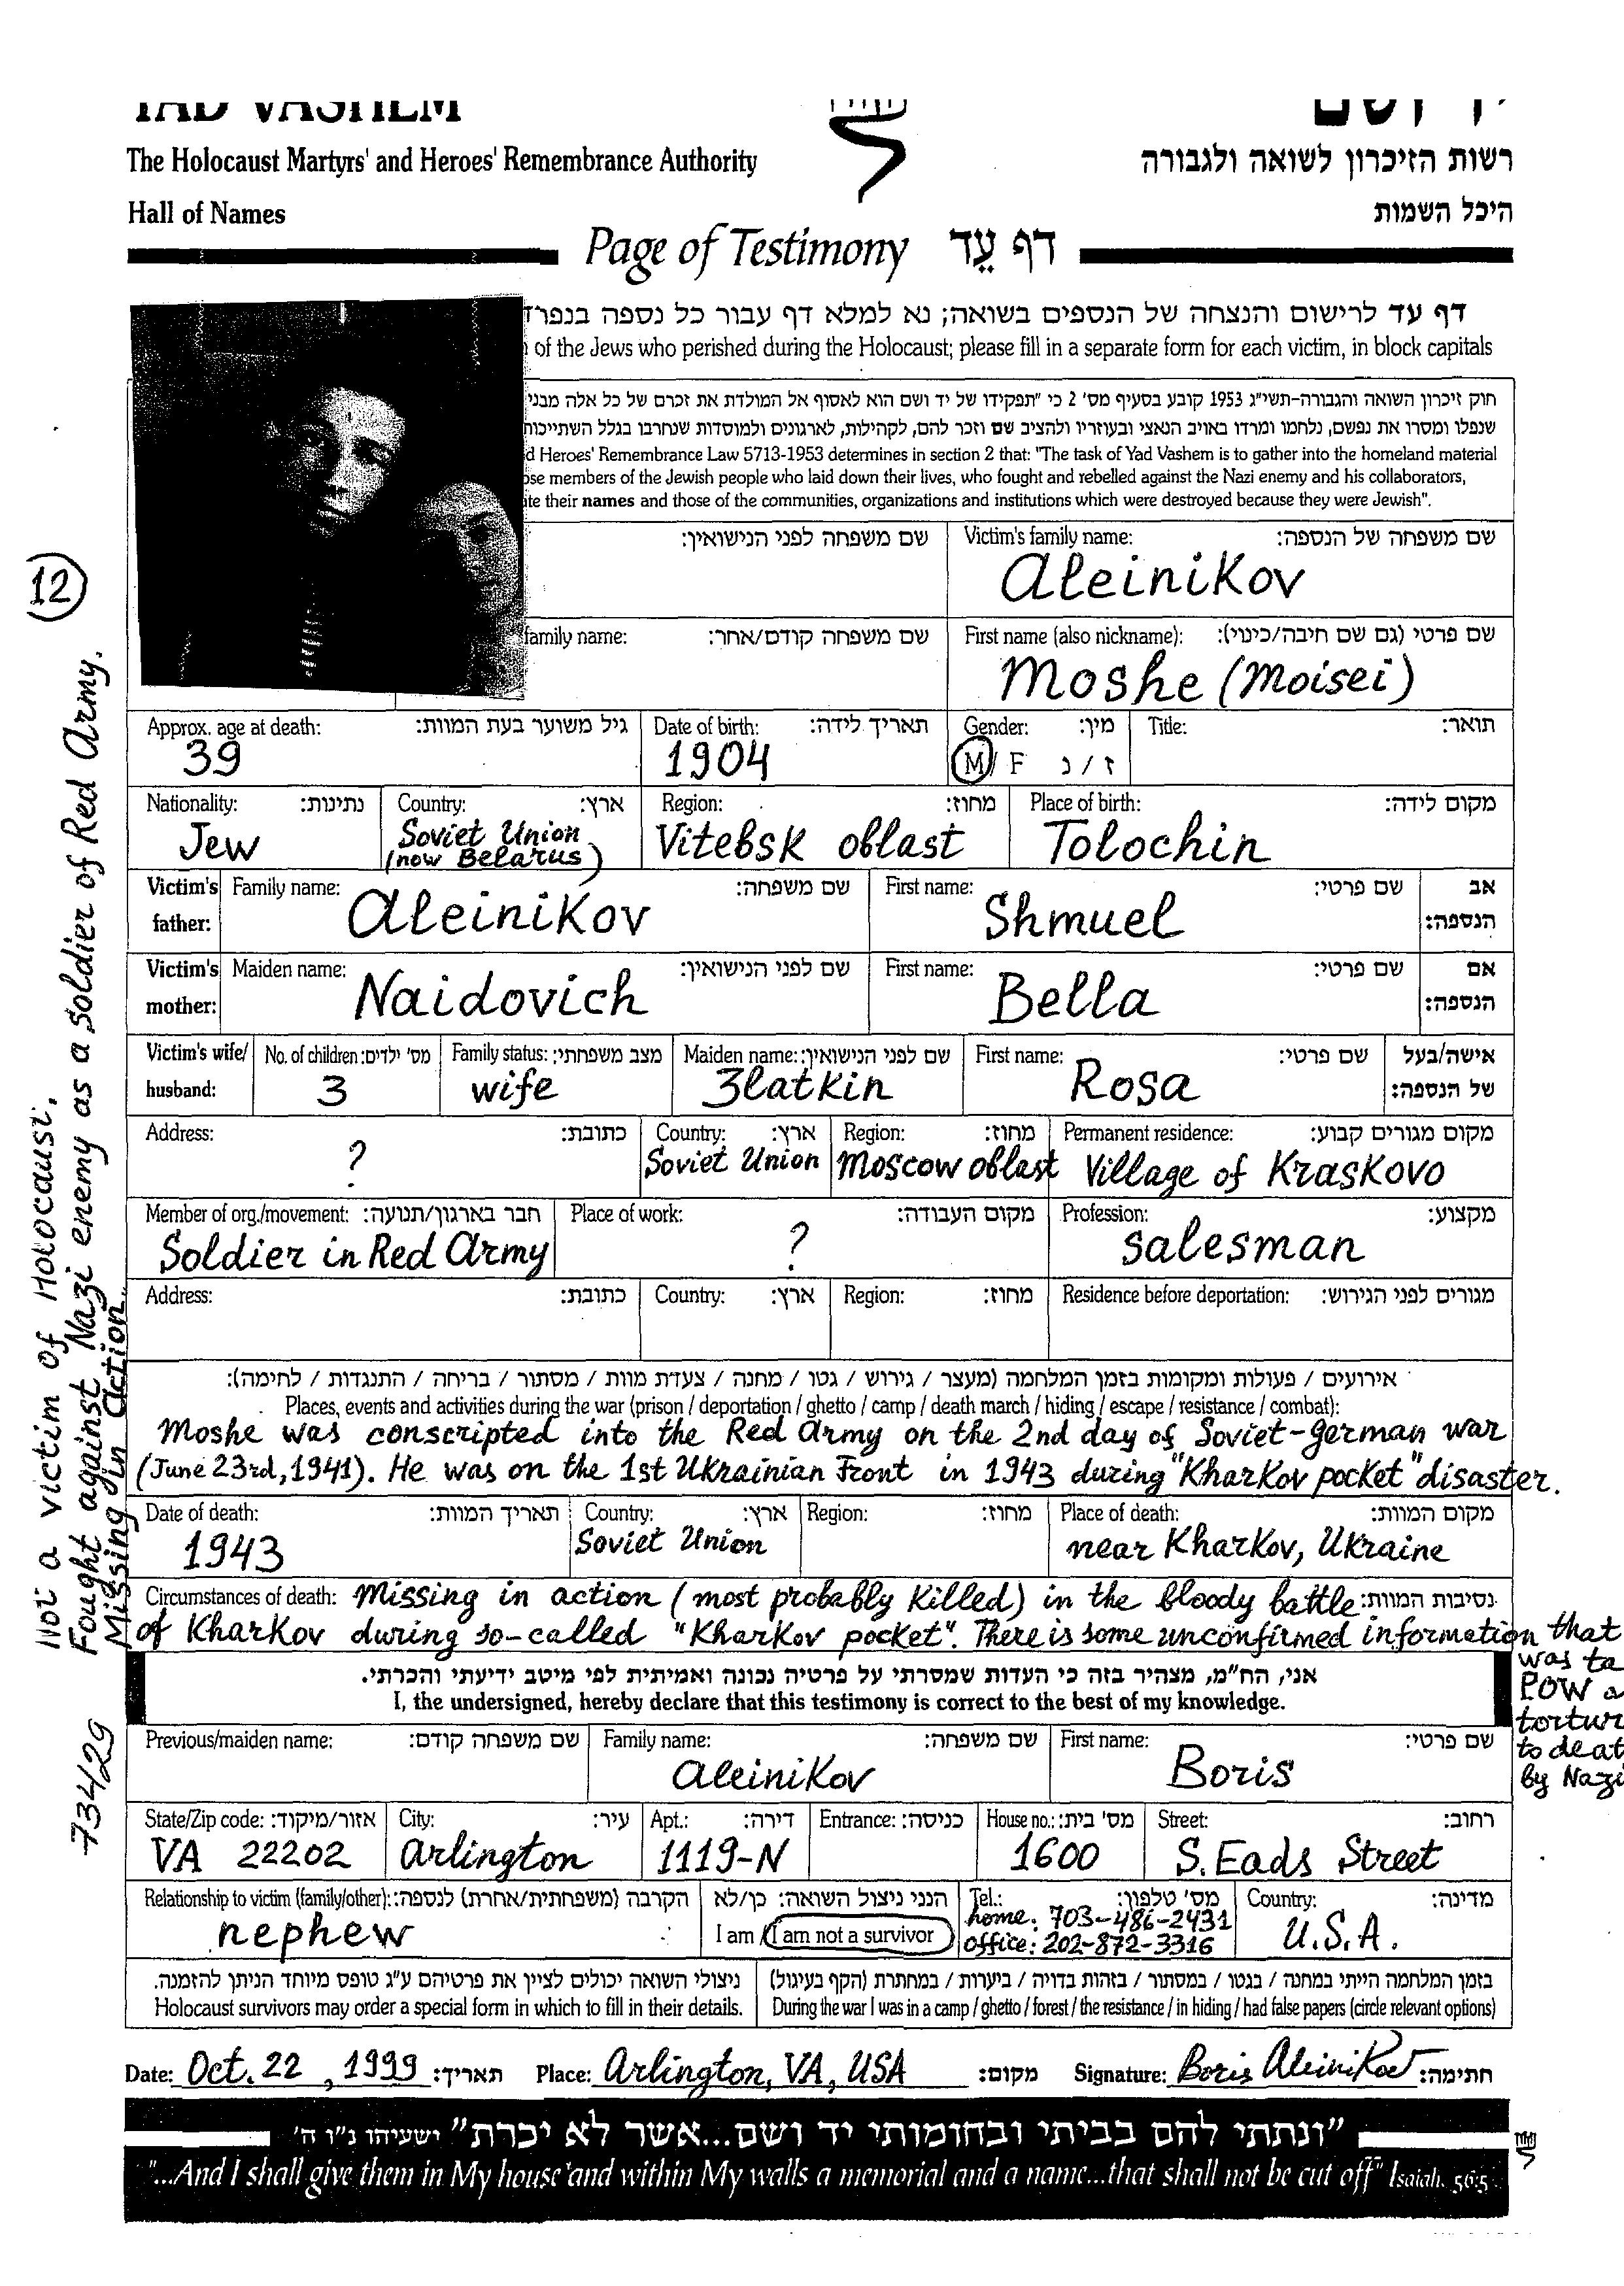 YAD VASHEM
יד ושם
The Holocaust Martyrs' and Heroes' Remembrance Authority
רשות הזיכרון לשואה ולגבורה
Hall of Names
היכל השמות
Page of Testimony דף עֵד
דף עד לרישום והנצחה של הנספים בשואה; נא למלא דף עבור כל נספה בנפרד
of the Jews who perished during the Holocaust; please fill in a separate form for each victim, in block capitals
חוק זיכרון השואה והגבורה-תשי"ג 1953 קובע בסעיף מס' 2 כי "תפקידו של יד ושם הוא לאסוף אל המולדת את זכרם של כל אלה מבני
שנפלו ומסרו את נפשם, נלחמו ומרדו באויב הנאצי ובעוזריו ולהציב שם וזכר להם, לקהילות, לארגונים ולמוסדות שנחרבו בגלל השתייכות
d Heroes' Remembrance Law 5713-1953 determines in section 2 that: "The task of Yad Vashem is to gather into the homeland material
ose members of the Jewish people who laid down their lives, who fought and rebelled against the Nazi enemy and his collaborators,
te their names and those of the communities, organizations and institutions which were destroyed because they were Jewish".
שם משפחה לפני הנישואין: Victim's family name: שם משפחה של הנספה:
Aleinikov
family name: שם משפחה קודם/אחר: First name (also nickname): שם פרטי (גם שם חיבה/כינוי):
Moshe (Moisei)
Approx. age at death: גיל משוער בעת המוות: Date of birth: תאריך לידה: Gender: מין: Title: תואר:
39 1904 M / F ז / נ
Nationality: נתינות: Country: ארץ: Region: מחוז: Place of birth: מקום לידה:
Jew Soviet Union (now Belarus) Vitebsk oblast Tolochin
Victim's father: Family name: שם משפחה: First name: שם פרטי: אב הנספה:
Aleinikov Shmuel
Victim's mother: Maiden name: שם לפני הנישואין: First name: שם פרטי: אם הנספה:
Naidovich Bella
Victim's wife/ husband: No. of children: מס' ילדים: Family status: מצב משפחתי: Maiden name: שם לפני הנישואין: First name: שם פרטי: אישה/בעל של הנספה:
3 wife Zlatkin Rosa
Address: כתובת: Country: ארץ: Region: מחוז: Permanent residence: מקום מגורים קבוע:
? Soviet Union Moscow oblast Village of Kraskovo
Member of org./movement: חבר בארגון/תנועה: Place of work: מקום העבודה: Profession: מקצוע:
Soldier in Red Army ? salesman
Address: כתובת: Country: ארץ: Region: מחוז: Residence before deportation: מגורים לפני הגירוש:
אירועים / פעולות ומקומות בזמן המלחמה (מעצר / גירוש / גטו / מחנה / צעדת מוות / מסתור / בריחה / התנגדות / לחימה):
Places, events and activities during the war (prison / deportation / ghetto / camp / death march / hiding / escape / resistance / combat):
Moshe was conscripted into the Red Army on the 2nd day of Soviet-German war
(June 23rd, 1941). He was on the 1st Ukrainian Front in 1943 during "Kharkov pocket" disaster.
Date of death: תאריך המוות: Country: ארץ: Region: מחוז: Place of death: מקום המוות:
1943 Soviet Union near Kharkov, Ukraine
Circumstances of death: Missing in action (most probably killed) in the bloody battle נסיבות המוות:
of Kharkov during so-called "Kharkov pocket". There is some unconfirmed information that
was ta
POW a
tortur
to deat
by Nazi
אני, הח"מ, מצהיר בזה כי העדות שמסרתי על פרטיה נכונה ואמיתית לפי מיטב ידיעתי והכרתי.
I, the undersigned, hereby declare that this testimony is correct to the best of my knowledge.
Previous/maiden name: שם משפחה קודם: Family name: שם משפחה: First name: שם פרטי:
Aleinikov Boris
State/Zip code: אזור/מיקוד: City: עיר: Apt.: דירה: Entrance: כניסה: House no.: מס' בית: Street: רחוב:
VA 22202 Arlington 1119-N 1600 S. Eads Street
Relationship to victim (family/other): הקרבה (משפחתית/אחרת) לנספה: הנני ניצול השואה: כן/לא Tel.: מס' טלפון: Country: מדינה:
nephew I am / I am not a survivor home: 703-486-2431 U.S.A.
office: 202-872-3316
ניצולי השואה יכולים לציין את פרטיהם ע"ג טופס מיוחד הניתן להזמנה. בזמן המלחמה הייתי במחנה / בגטו / במסתור / בזהות בדויה / ביערות / במחתרת (הקף בעיגול)
Holocaust survivors may order a special form in which to fill in their details. During the war I was in a camp / ghetto / forest / the resistance / in hiding / had false papers (circle relevant options)
Date: Oct. 22, 1999 תאריך: Place: Arlington, VA, USA מקום: Signature: Boris Aleinikov חתימה:
"ונתתי להם בביתי ובחומותי יד ושם...אשר לא יכרת" ישעיהו נ"ו ה'
"...And I shall give them in My house and within My walls a memorial and a name...that shall not be cut off" Isaiah. 56:5
12
Not a victim of Holocaust.
Fought against Nazi enemy as a soldier of Red Army.
Missing in Action.
73429